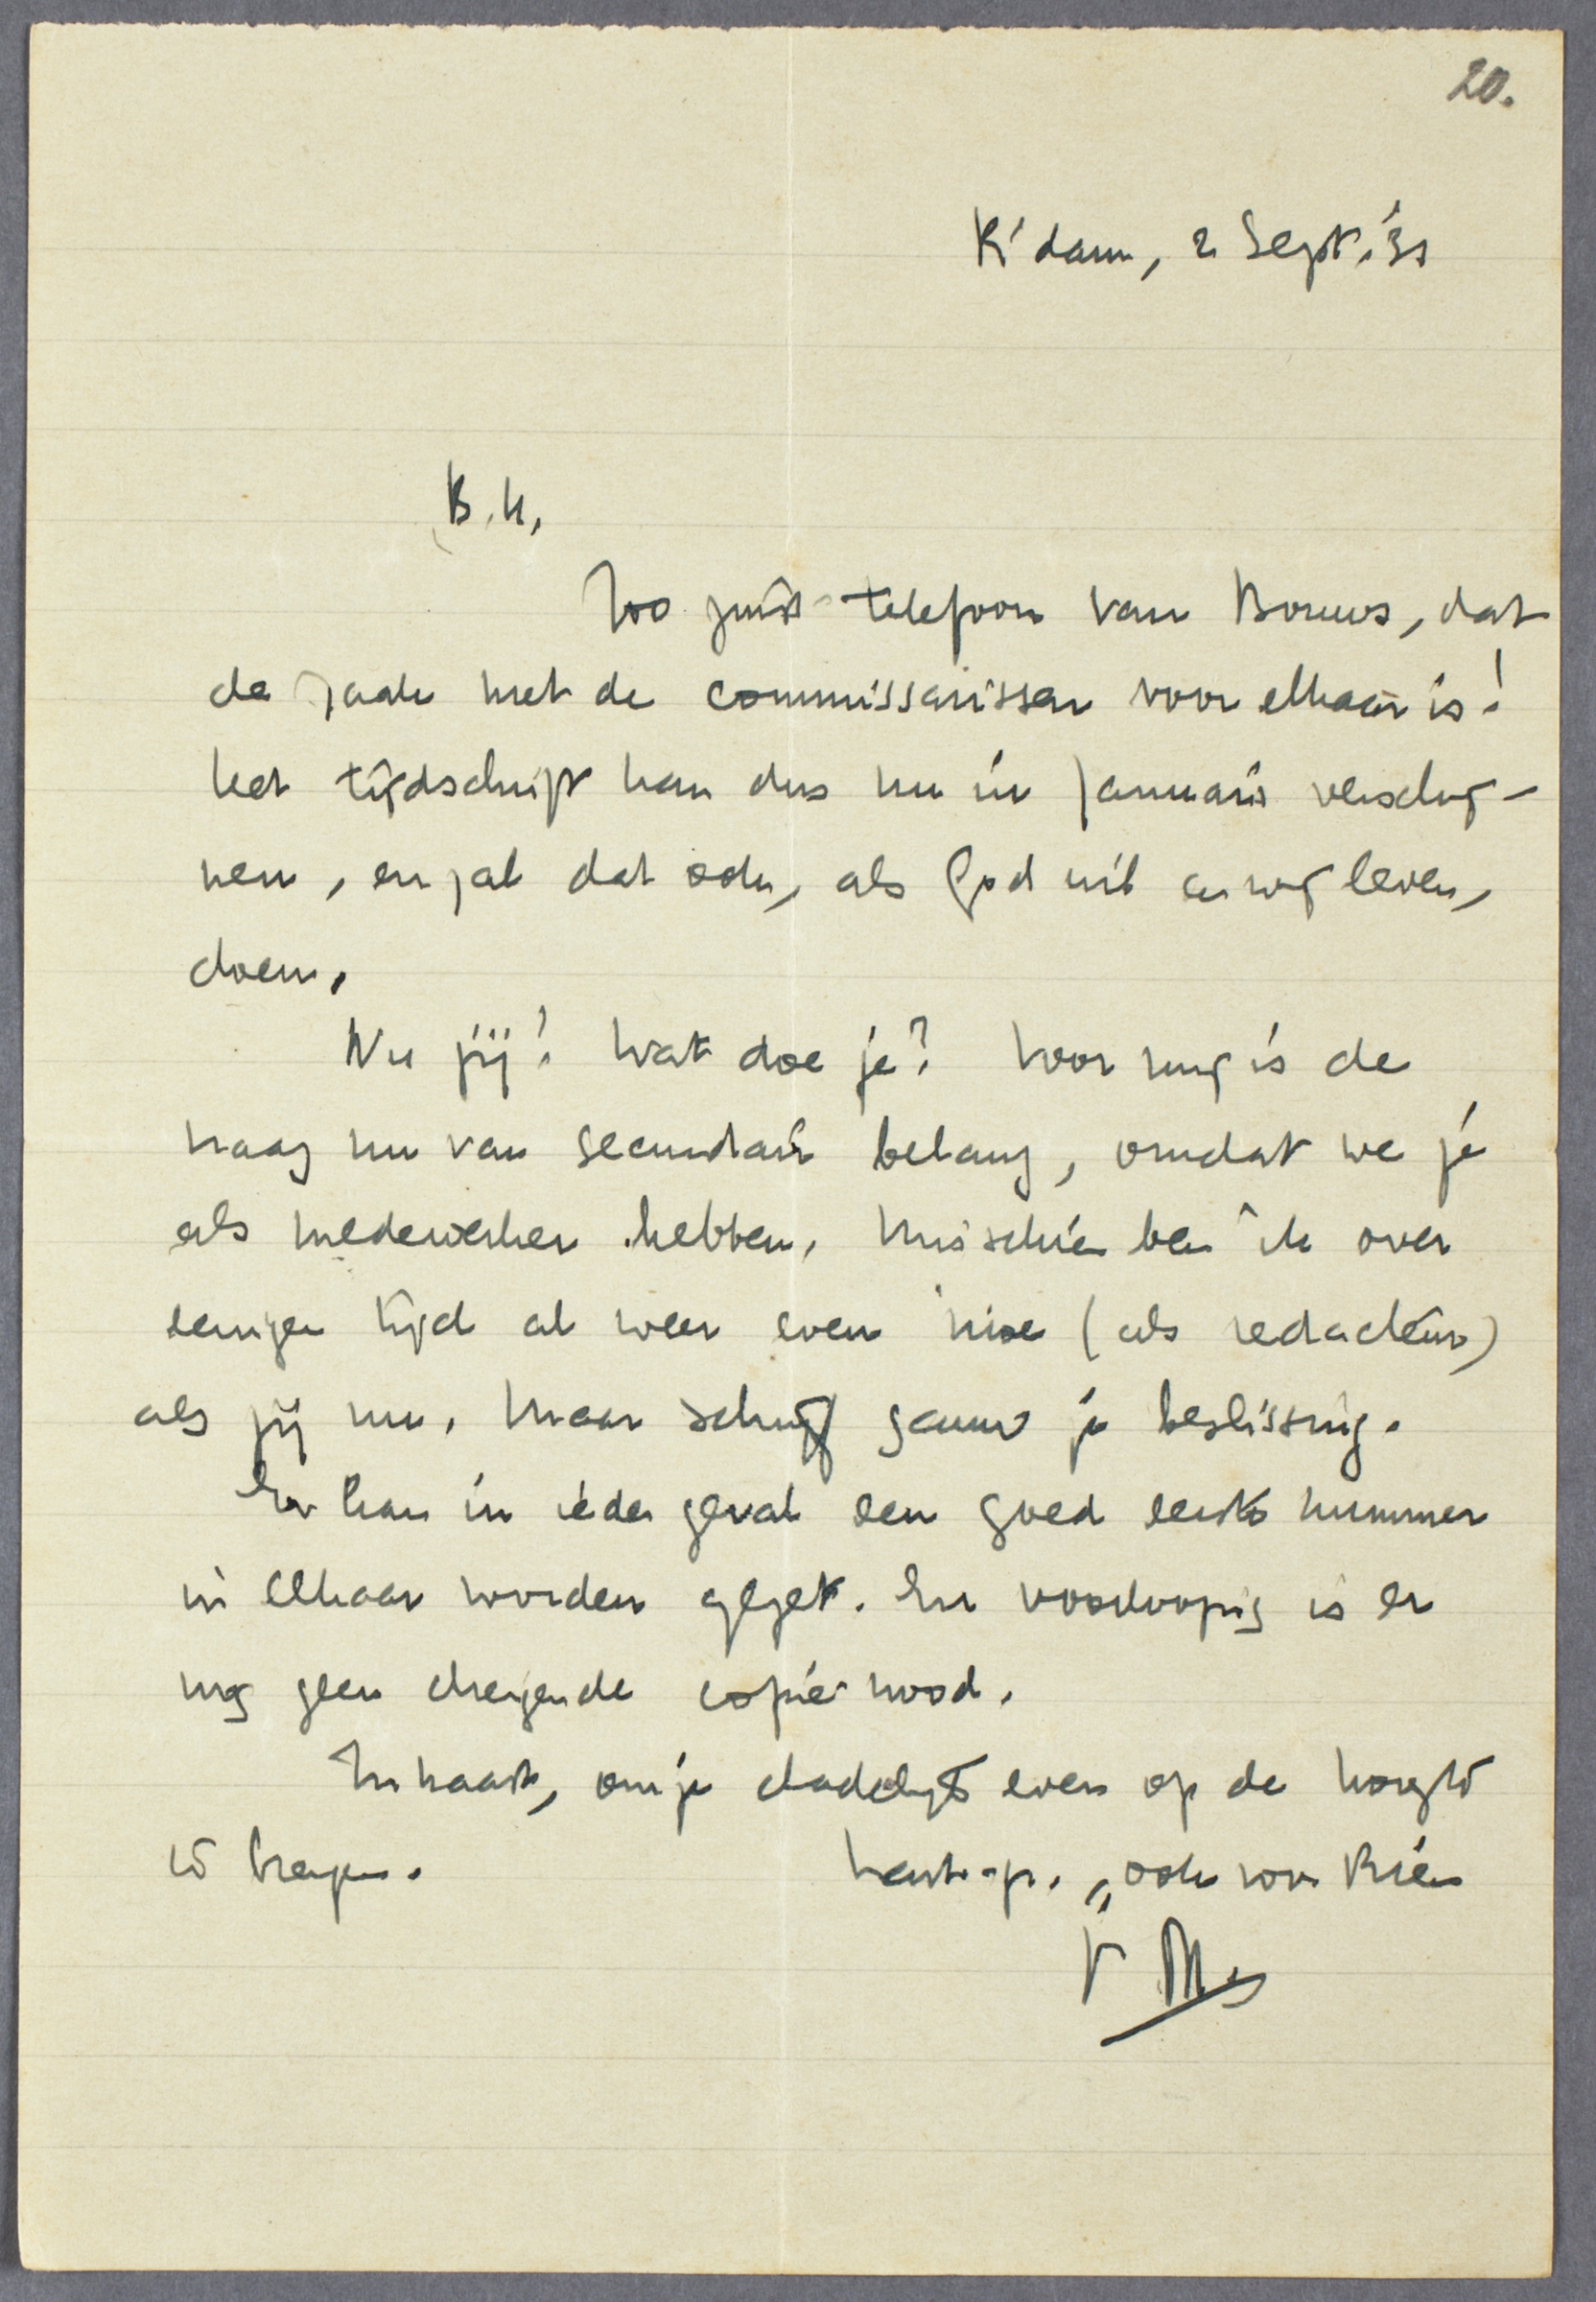 20.
R'dam, 2 Sept. '31
B.M.
Zoo juist telefoon van Bouws, dat
de zaak met de commissarissen voor elkaar is!
Het tijdschrift kan dus nu in Januari verschij-
nen, en zal dat ook, als God wil en wij leven,
doen.
Nu jij! Wat doe je? Voor mij is de
vraag nu van secundair belang, omdat we je
als medewerker hebben. Misschien ben ik over
eenigen tijd al weer even moe (als redacteur)
als jij nu. Maar schrijf gauw je beslissing.
Er kan in ieder geval een goed eerste nummer
in elkaar worden gezet. En voorloopig is er
nog geen dreigende copie-nood.
In haast, om je dadelijk even op de hoogte
te brengen. hart. gr., ook van Bien